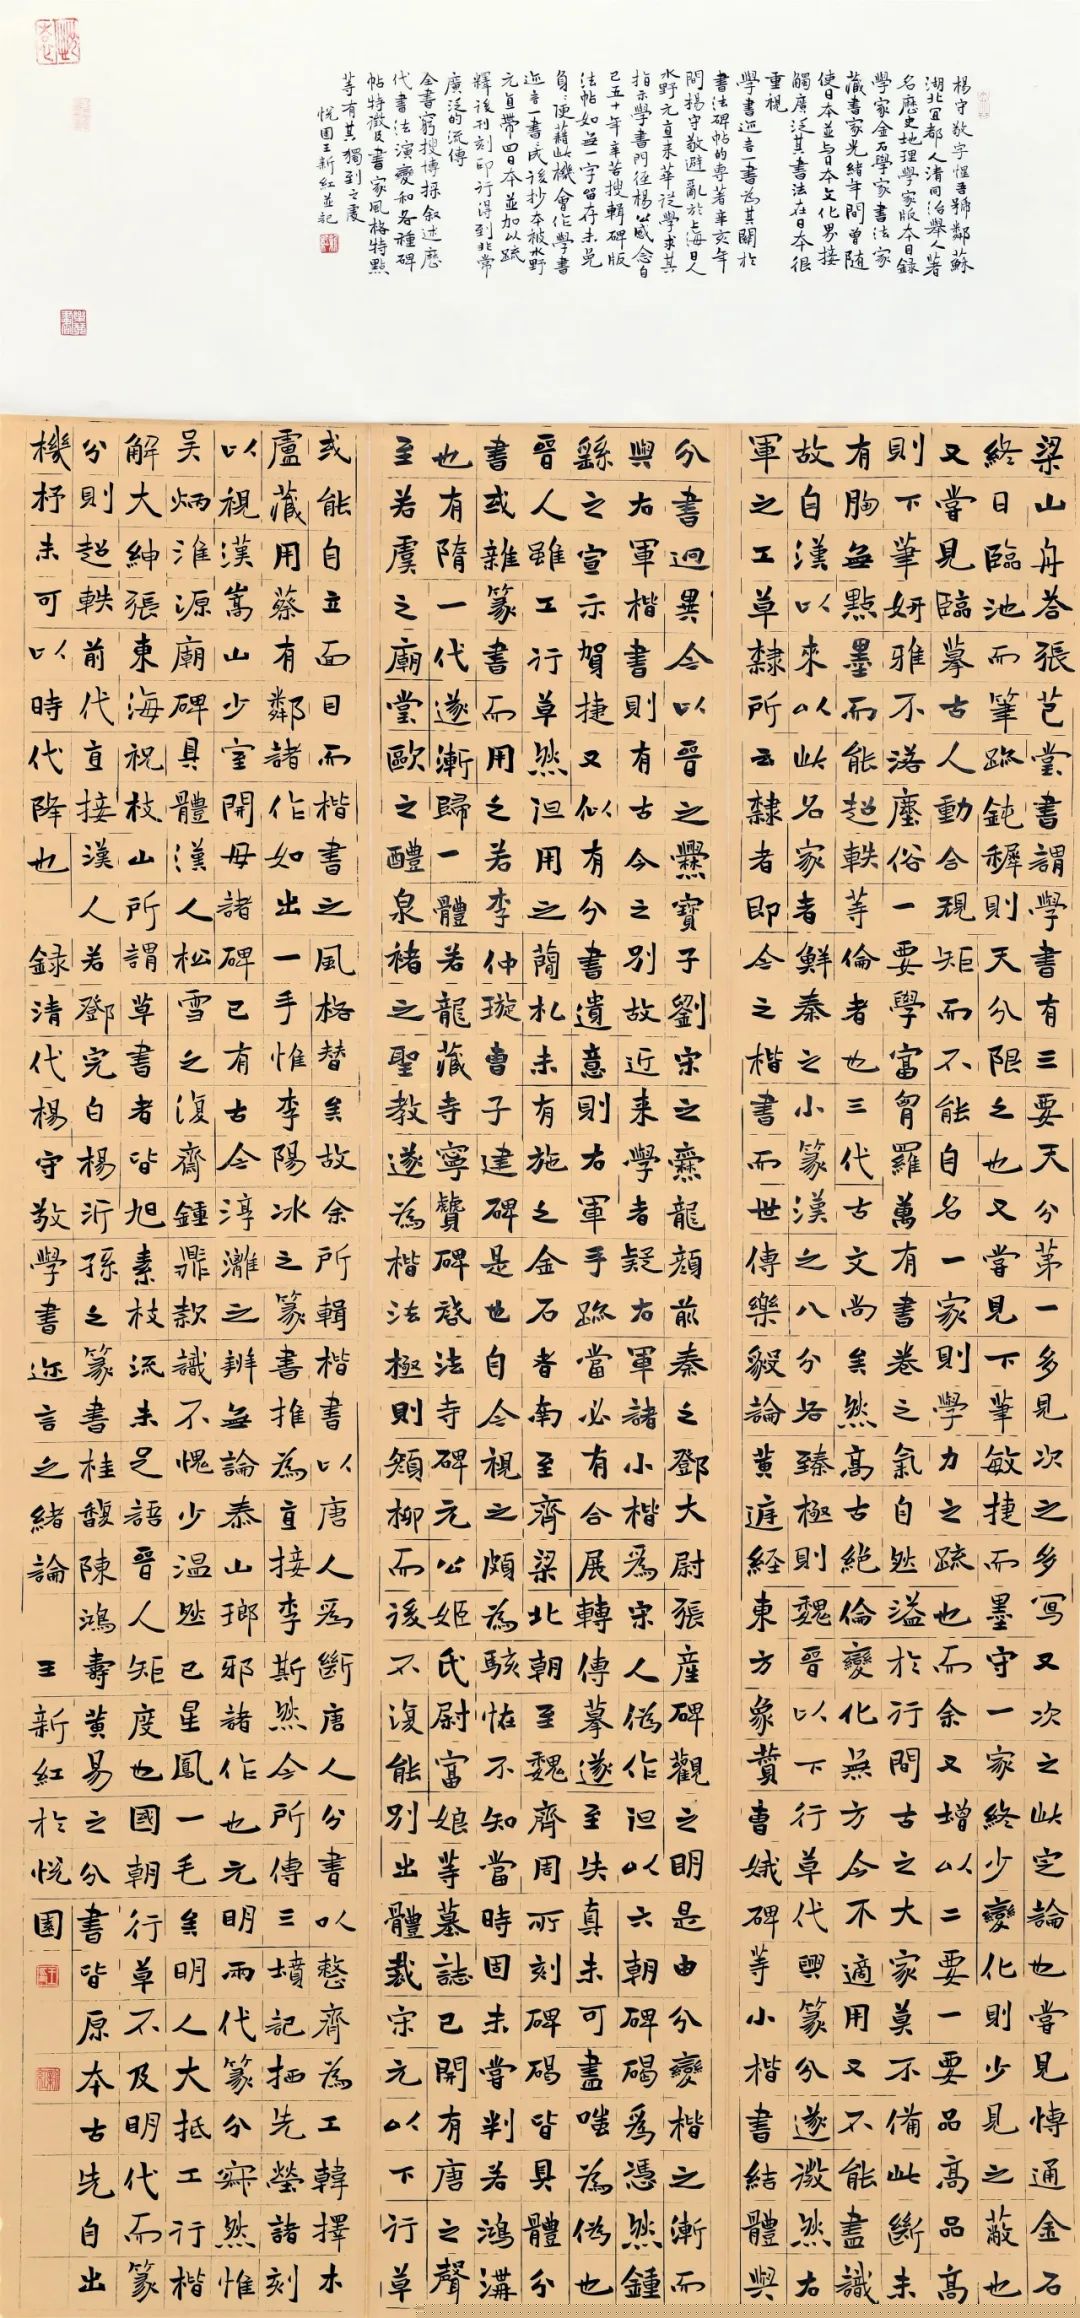 楊守敬字惺吾號鄰蘇
湖北宜都人清同治舉人著
名歷史地理學家版本目録
學家金石學家書法家
藏書家光緒年間曾随
使日本並与日本文化界接
觸廣泛其書法在日本很
重視
學書迩言一書為其關於
書法碑帖的專著辛亥年
間楊守敬避亂於上海日人
水野元直来華從學求其
指示學書門徑楊公感念自
己五十年辛苦搜輯碑版
法帖如無一字留存未免
負負便藉此機會作學書
迩言一書成後抄本被水野
元直帶回日本並加以疏
釋後刊刻印行得到非常
廣泛的流傳
全書窮搜博採叙述歷
代書法演變和各種碑
帖特徵及書家風格特點
等有其獨到之處
悦園王新紅並記
梁山舟答張芑堂書謂學書有三要天分苐一多見次之多寫又次之此定論也嘗見博通金石
終日臨池而筆跡鈍穉則天分限之也又嘗見下筆敏捷而墨守一家終少變化則少見之蔽也
又嘗見臨摹古人動合規矩而不能自名一家則學力之疏也而余又增以二要一要品高品高
則下筆妍雅不落塵俗一要學富胷羅萬有書卷之氣自然溢於行間古之大家莫不備此斷未
有胸無點墨而能超軼等倫者也三代古文尚矣然高古絶倫變化無方今不適用又不能盡識
故自漢以來以此名家者鮮秦之小篆漢之八分各臻極則魏晉以下行草代興篆分遂微然右
軍之工草隸所云隸者即今之楷書而世傳樂毅論黄庭経東方象贊曹娥碑等小楷書結體與
分書迥異今以晉之爨寶子劉宋之爨龍顔前秦之鄧大尉張産碑觀之明是由分變楷之漸而
與右軍楷書則有古今之別故近来學者疑右軍諸小楷爲宋人偽作但以六朝碑碣爲憑然鍾
繇之宣示賀捷又似有分書遺意則右軍手跡當必有合展轉傳摹遂至失真未可盡嗤為偽也
晉人雖工行草然但用之蘭札未有施之金石者南至齊梁北朝至魏齊周所刻碑碣皆具體分
書或雜篆書而用之若李仲璇曹子建碑是也自今視之頗為駭怪不知當時固未嘗判若鴻溝
也有隋一代遂漸歸一體若龍藏寺寧贙碑啟法寺碑元公姬氏尉富娘等墓誌已開有唐之聲
至若虞之廟堂歐之醴泉褚之聖教遂為楷法極則顔柳而後不復能別出體裁宋元以下行草
或能自立面目而楷書之風格替矣故余所輯楷書以唐人爲斷唐人分書以整齊為工韓擇木
盧藏用蔡有鄰諸作如出一手惟李陽冰之篆書推為直接李斯然今所傳三墳記栖先塋諸刻
以視漢嵩山少室開母諸碑已有古今淳漓之辨無論泰山瑯邪諸作也元明兩代篆分寂然惟
吴炳淮源廟碑具體漢人松雪之復齋鍾鼎款識不愧少温然已星鳳一毛矣明人大抵工行楷
解大紳張東海祝枝山所謂草書者皆旭素枝流未足語晉人矩度也國朝行草不及明代而篆
分則超軼前代直接漢人若鄧完白楊沂孫之篆書桂馥陳鴻壽黄易之分書皆原本古先自出
機杼未可以時代降也 録清代楊守敬學書迩言之緒論 王新紅於悦園